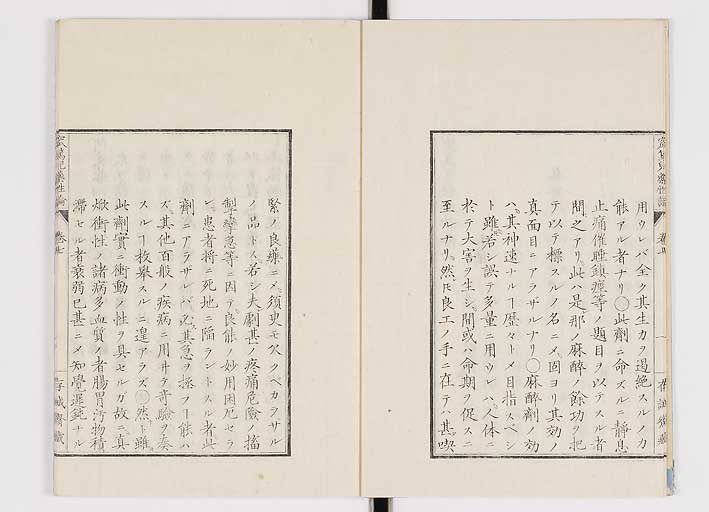 用ウレバ全ク其生力ヲ遏絶スルノカ
能アル者ナリ〇此劑ニ命ズルニ静息
止痛催睡鎮痙等ノ題目ヲ以テスル者
間之アリ此ハ是那ノ麻酔ノ餘功ヲ把
テ以テ標スルノ名ニメ固ヨリ其効ノ
真面目ニアラザルナリ〇麻酔劑ノ効
ハ其神速ナルヿ歴々トメ目指スベシ
ト雖若シ誤テ多量ニ用ウレハ人体ニ
於テ大害ヲ生シ間或ハ命期ヲ促スニ
至ルナリ然𪜈良工ノ手ニ在テハ甚喫
緊ノ良藥ニメ須臾モ欠クベカラザル
ノ品トス若シ夫劇甚ノ疼痛危険ノ搐
掣攣急等ニ因テ良能ノ妙用困厄セラ
レ患者将ニ死地ニ陥ラントスル者此
劑ニアラザレバ其急ヲ拯フヿ能ハ
ズ其他百般ノ疾病ニ用ヰテ奇験ヲ奏
スルヿ枚擧スルニ遑アラズ〇然ト雖
此劑實ニ衝動ノ性ヲ具セルガ故ニ真
焮衝性ノ諸病多血質ノ者腸胃汚物積
滞セル者衰弱已甚ニメ知覺遅鈍ナル
卷七
存誠齋藏